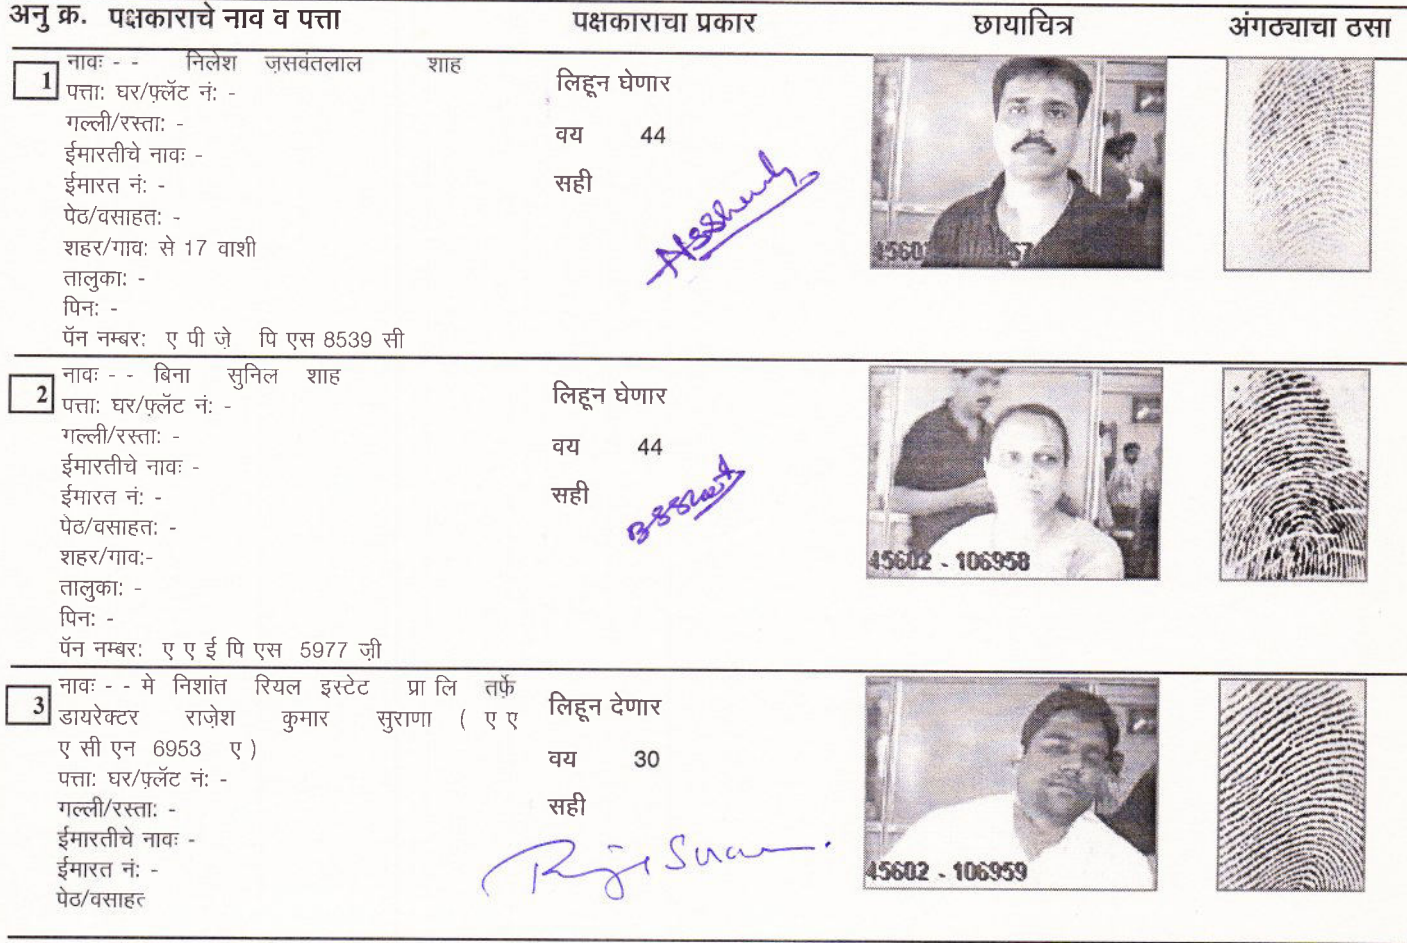 अनु क्र. पक्षकाराचे नाव व पत्ता पक्षकाराचा प्रकार छायाचित्र अंगठ्याचा ठसा
1
नावः - - निलेश ज़सवंतलाल शाह
पत्ता: घर/फ़्लॅट नं: -
गल्ली/रस्ता: -
ईमारतीचे नावः -
ईमारत नं: -
पेठ/वसाहत: -
शहर/गाव: से 17 वाशी
तालुका: -
पिन: -
पॅन नम्बर: ए पी ज़े पि एस 8539 सी
लिहून घेणार
वय 44
सही
2
नावः - - बिना सुनिल शाह
पत्ता: घर/फ़्लॅट नं: -
गल्ली/रस्ता: -
ईमारतीचे नावः -
ईमारत नं: -
पेठ/वसाहत: -
शहर/गाव:-
तालुका: -
पिन: -
पॅन नम्बर: ए ए ई पि एस 5977 ज़ी
लिहून घेणार
वय 44
सही
45602 - 106958
3
नावः - - मे निशांत रियल इस्टेट प्रा लि तर्फ़े
डायरेक्टर राज़ेश कुमार सुराणा ( ए ए
ए सी एन 6953 ए )
पत्ता: घर/फ़्लॅट नं: -
गल्ली/रस्ता: -
ईमारतीचे नावः -
ईमारत नं: -
पेठ/वसाहत
लिहून देणार
वय 30
सही
45602 - 106959